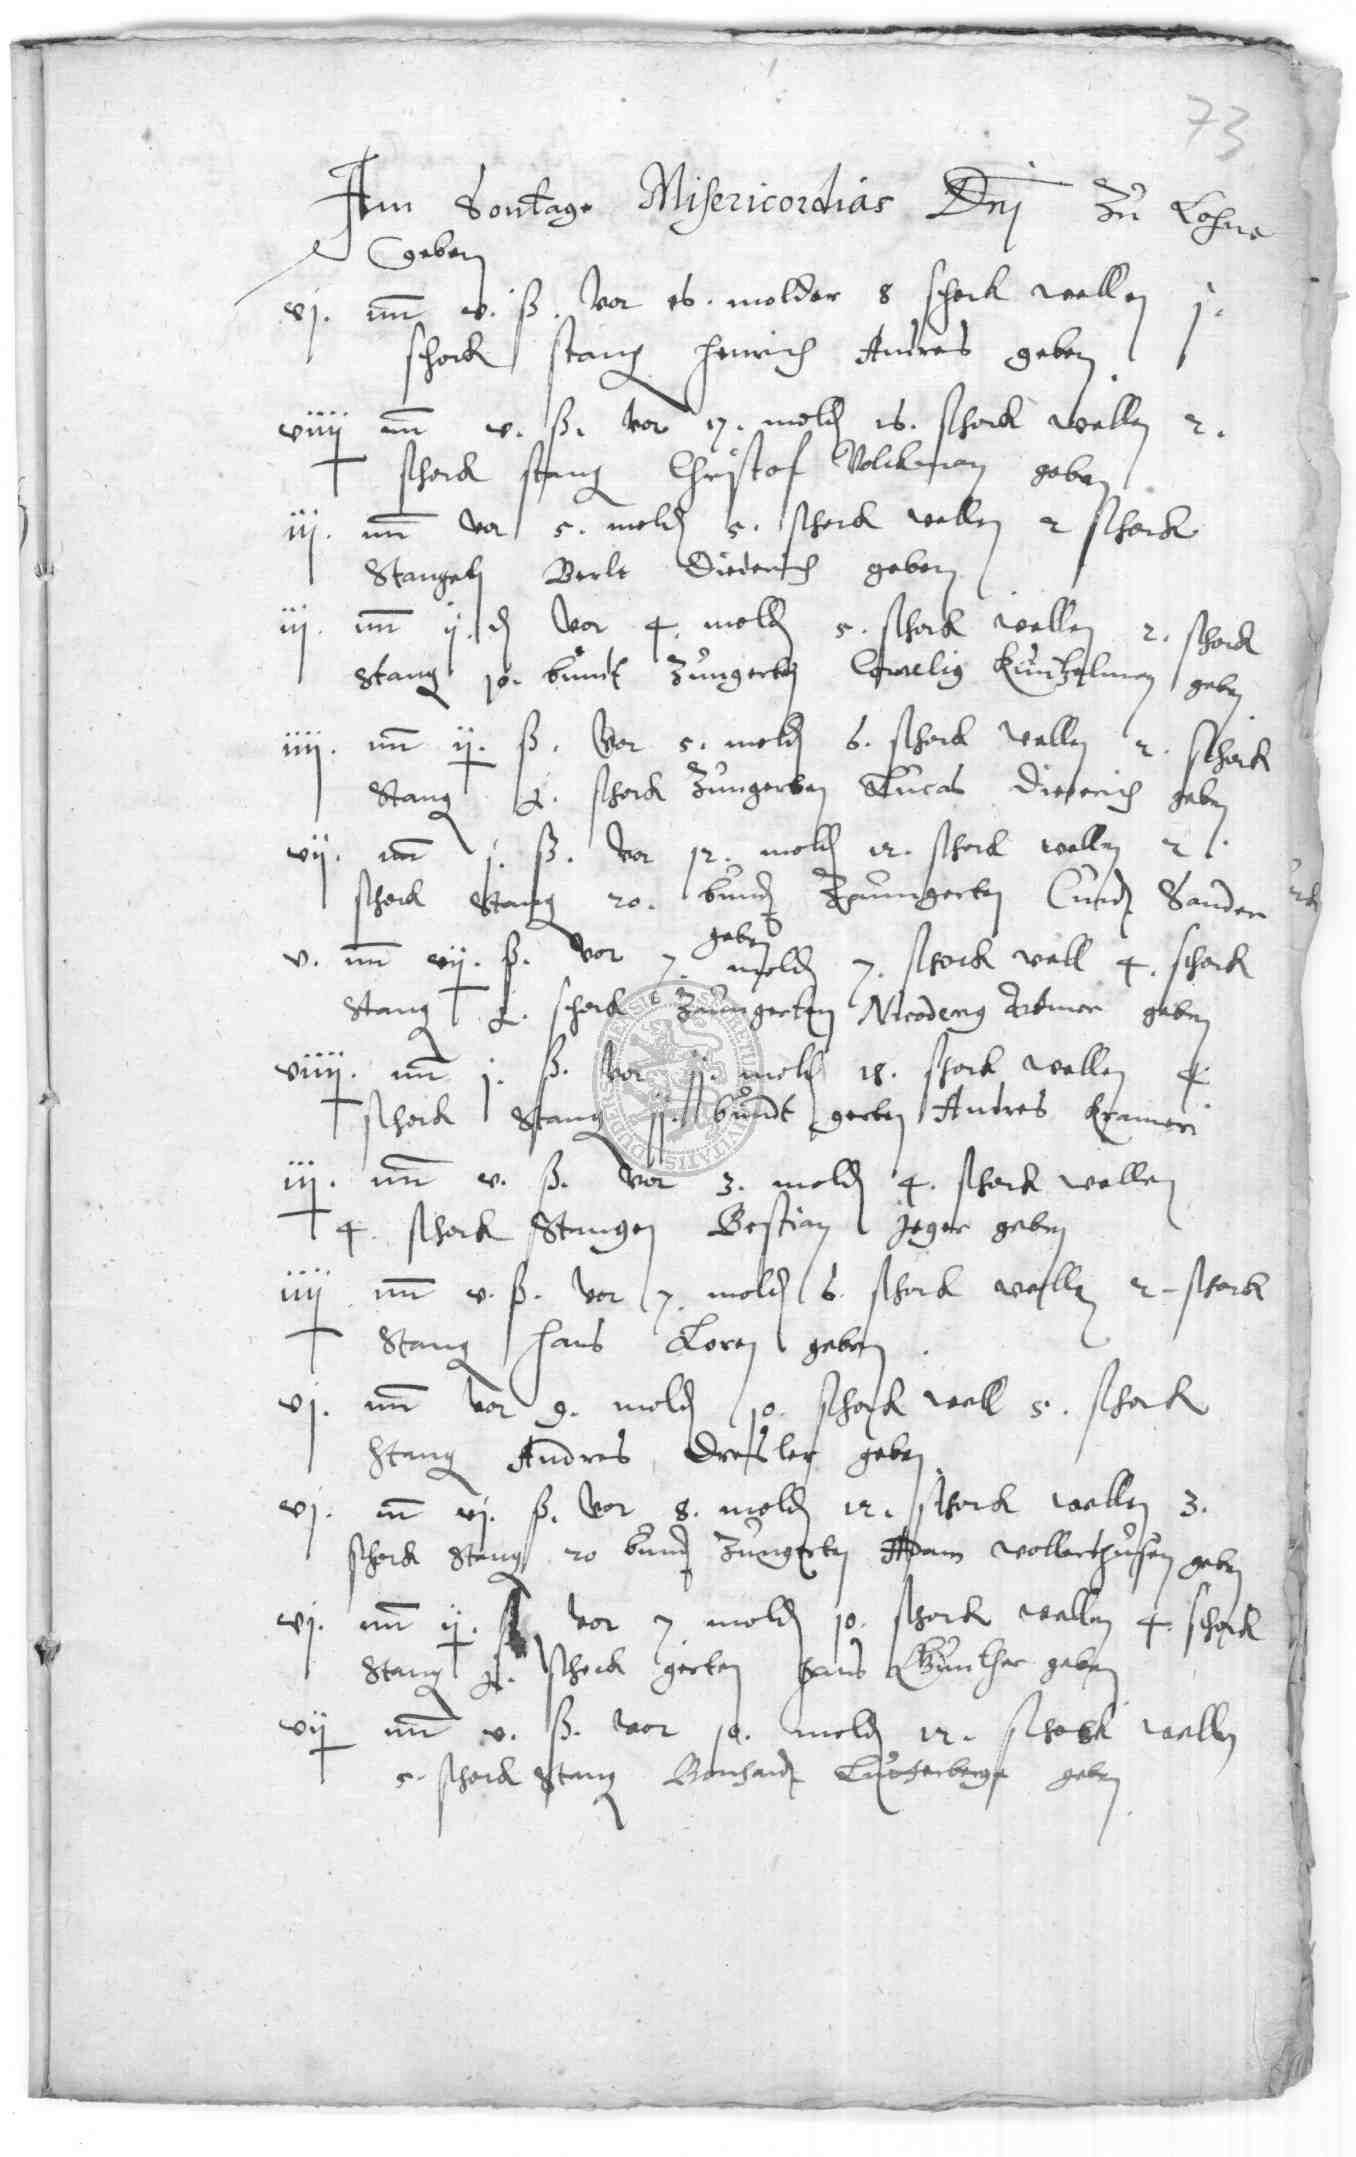 73
Am Sontage Misericordias Dnj Zu Lohne
geben
vj. mr v. ß. vor 16. molder 8 schock wellen j.
schock stang Henrich Andres geben
viiij mr v. ß. vor 17. mold 16. schock wellen 2.
schock stang Christof Volckman geben
iij. mr vor 5. mold 5. schock wellen 2 schock
Stangen Berlt Diderich geben
iij. mr ij. d vor 4. mold 5. schock wellen 2. schock
Stang 10. bundt Zungerten Cornelig Kuntzelman geben
iiij. mr ij. ß. vor 5. mold 6. schock wellen 2. schock
Stang j. schock Zungerten Lucas Diderich geben
vij. mr j. ß. vor 12. mold 12. schock wellen 2.
schock Stang 20. bund Zaungerten Curd Sander
geben
v. mr vij. ß. vor 7. mold 7. schock well 4. schock
Stang j. schock Zaungerten Nicodemg geben
viiij. mr j. ß. vor 11. mold 18. schock wellen 4
schock Stang 11. bundt gerten Andres Kramer
iij. mr v. ß. vor 3. mold 4. schock wellen
4. schock Stangen Bestian Jeger geben
iiij mr v. ß. vor 7. mold 6. schock wellen 2 schock
Stang Hans Loren geben.
vj. mr vor 9. mold 10. schock well 5. schock
Stang Andres Dresler geben
vj. mr vj. ß. vor 8. mold 12. schock wellen 3.
schock Stang 20 bund Zungerten Adam geben
vj. mr ij. ß vor 7 mold 10. schock wellen 4. schock
Stang j. schock gerten Hans Gunther geben
vij mr v. ß. vor 10. mold 12. schock wellen
5. schock Stang geben